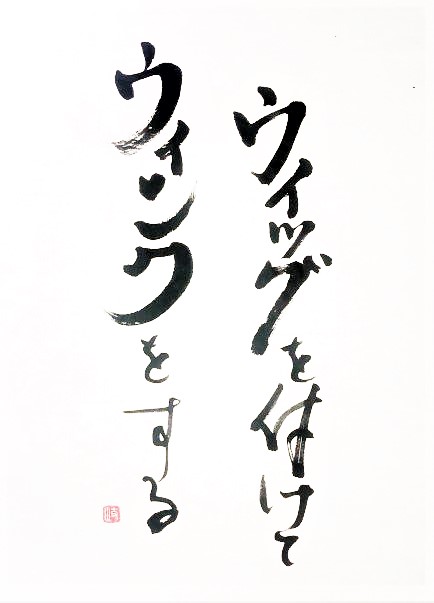 ウィッグを付けて
ウィンクをする